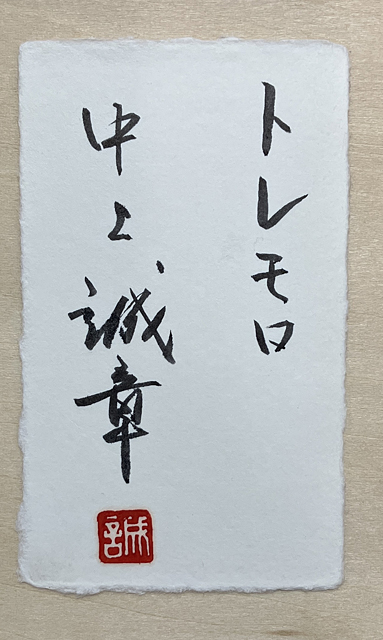 トレモロ
中上誠章
誠